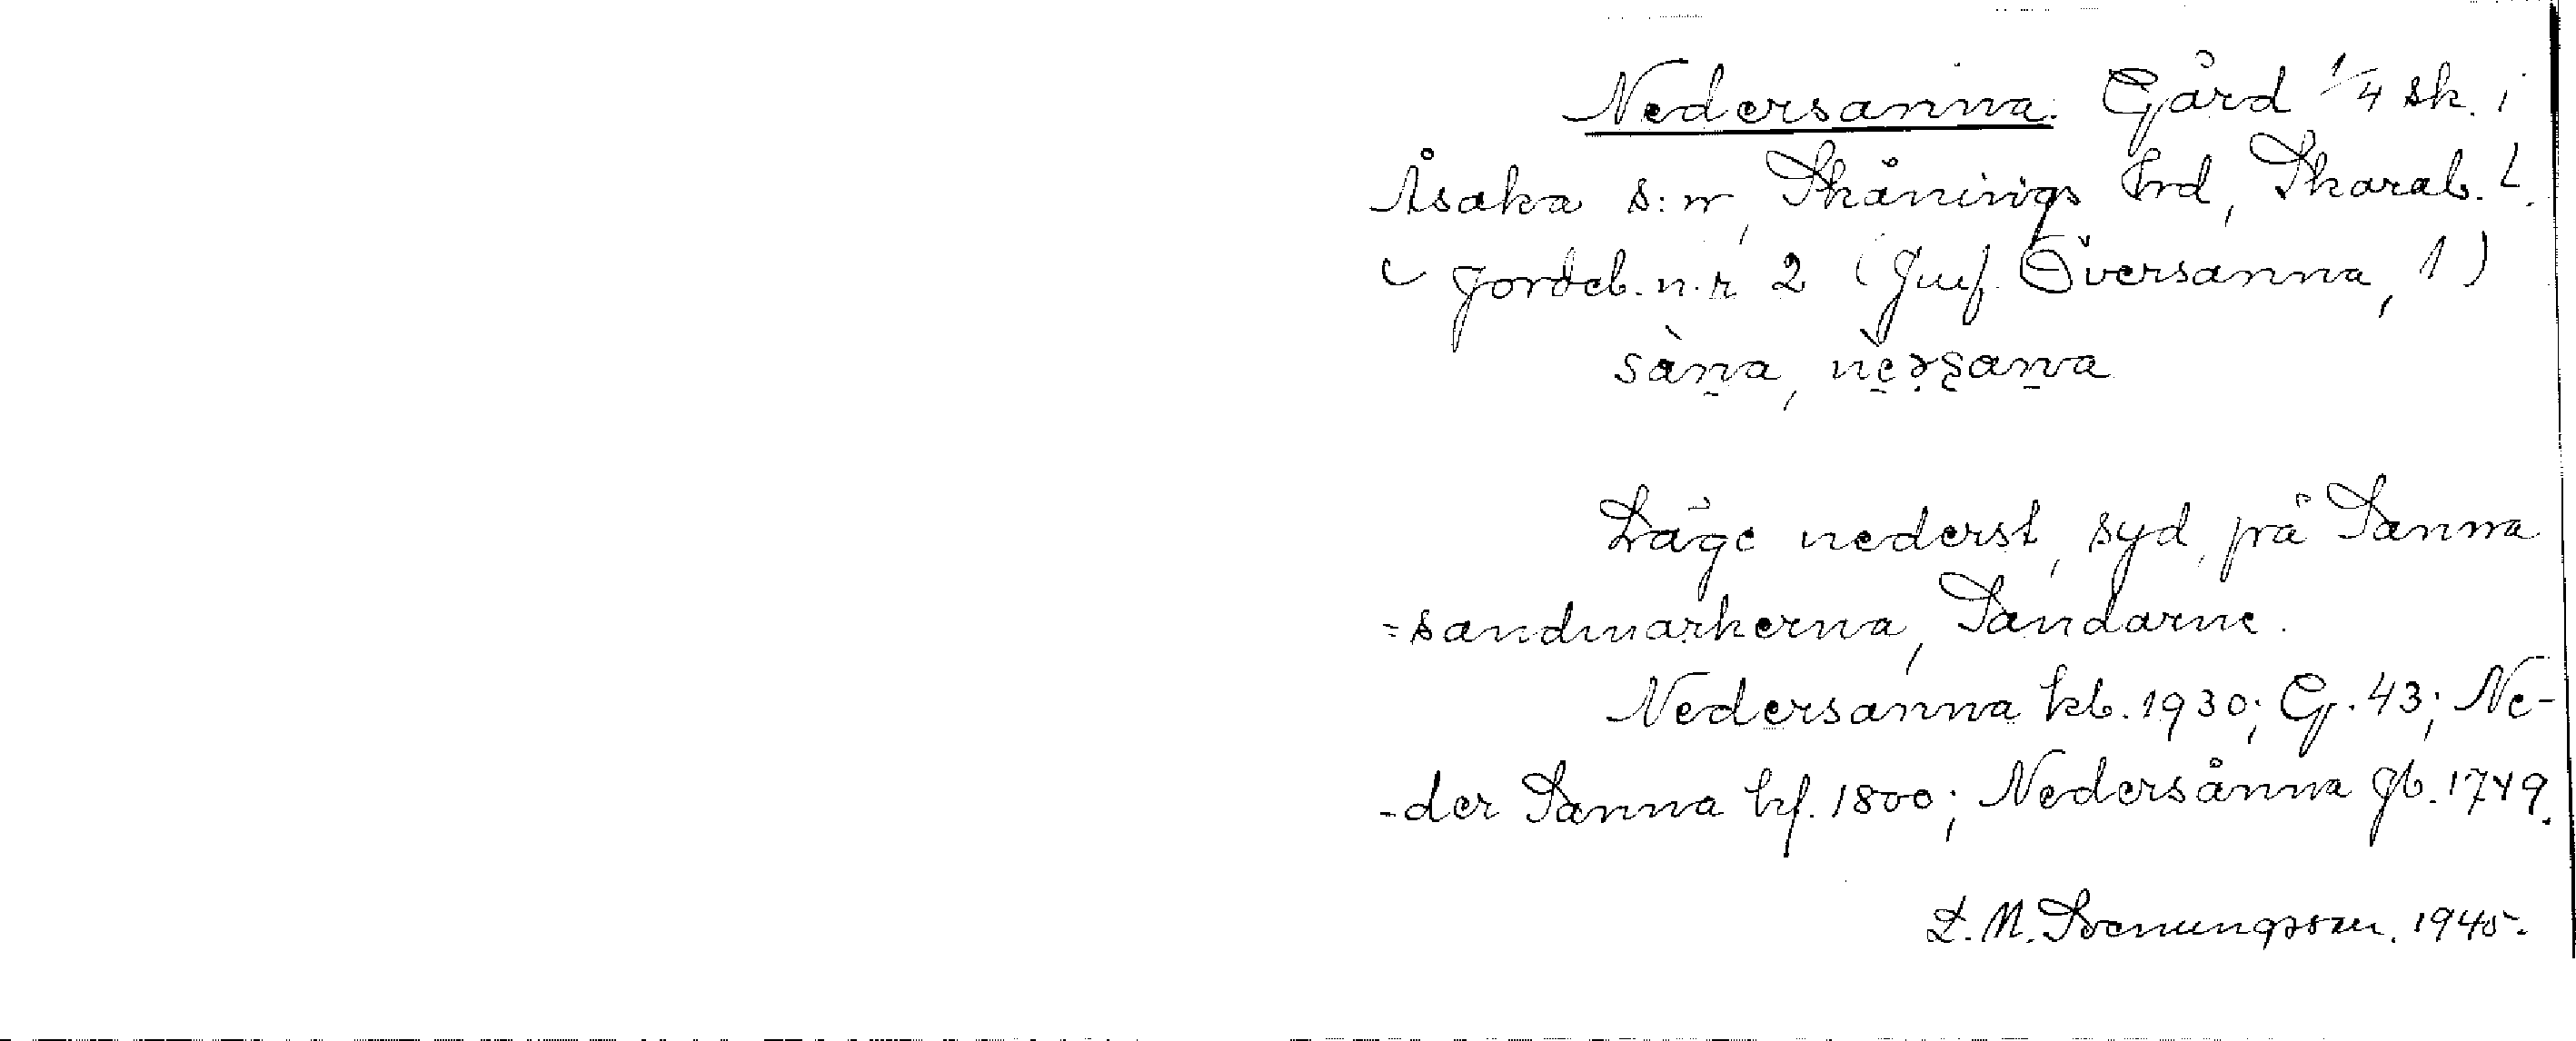 Nedersanna. Gård 1/4 sk. i
Åsaka s:n, Skånings hrd, Skarab. L.
Jordeb. n:r 2 (Jmf. Översanna, 1)
sàna, nèrsana
Läge nederst, syd, på Sanna
=sandmarkerna, Sandarne.
Nedersanna kb. 1930; G. 43; Ne-
-der Sanna hf. 1800; Nedersånna gb. 1749.
L. M. Svenungsson. 1945.